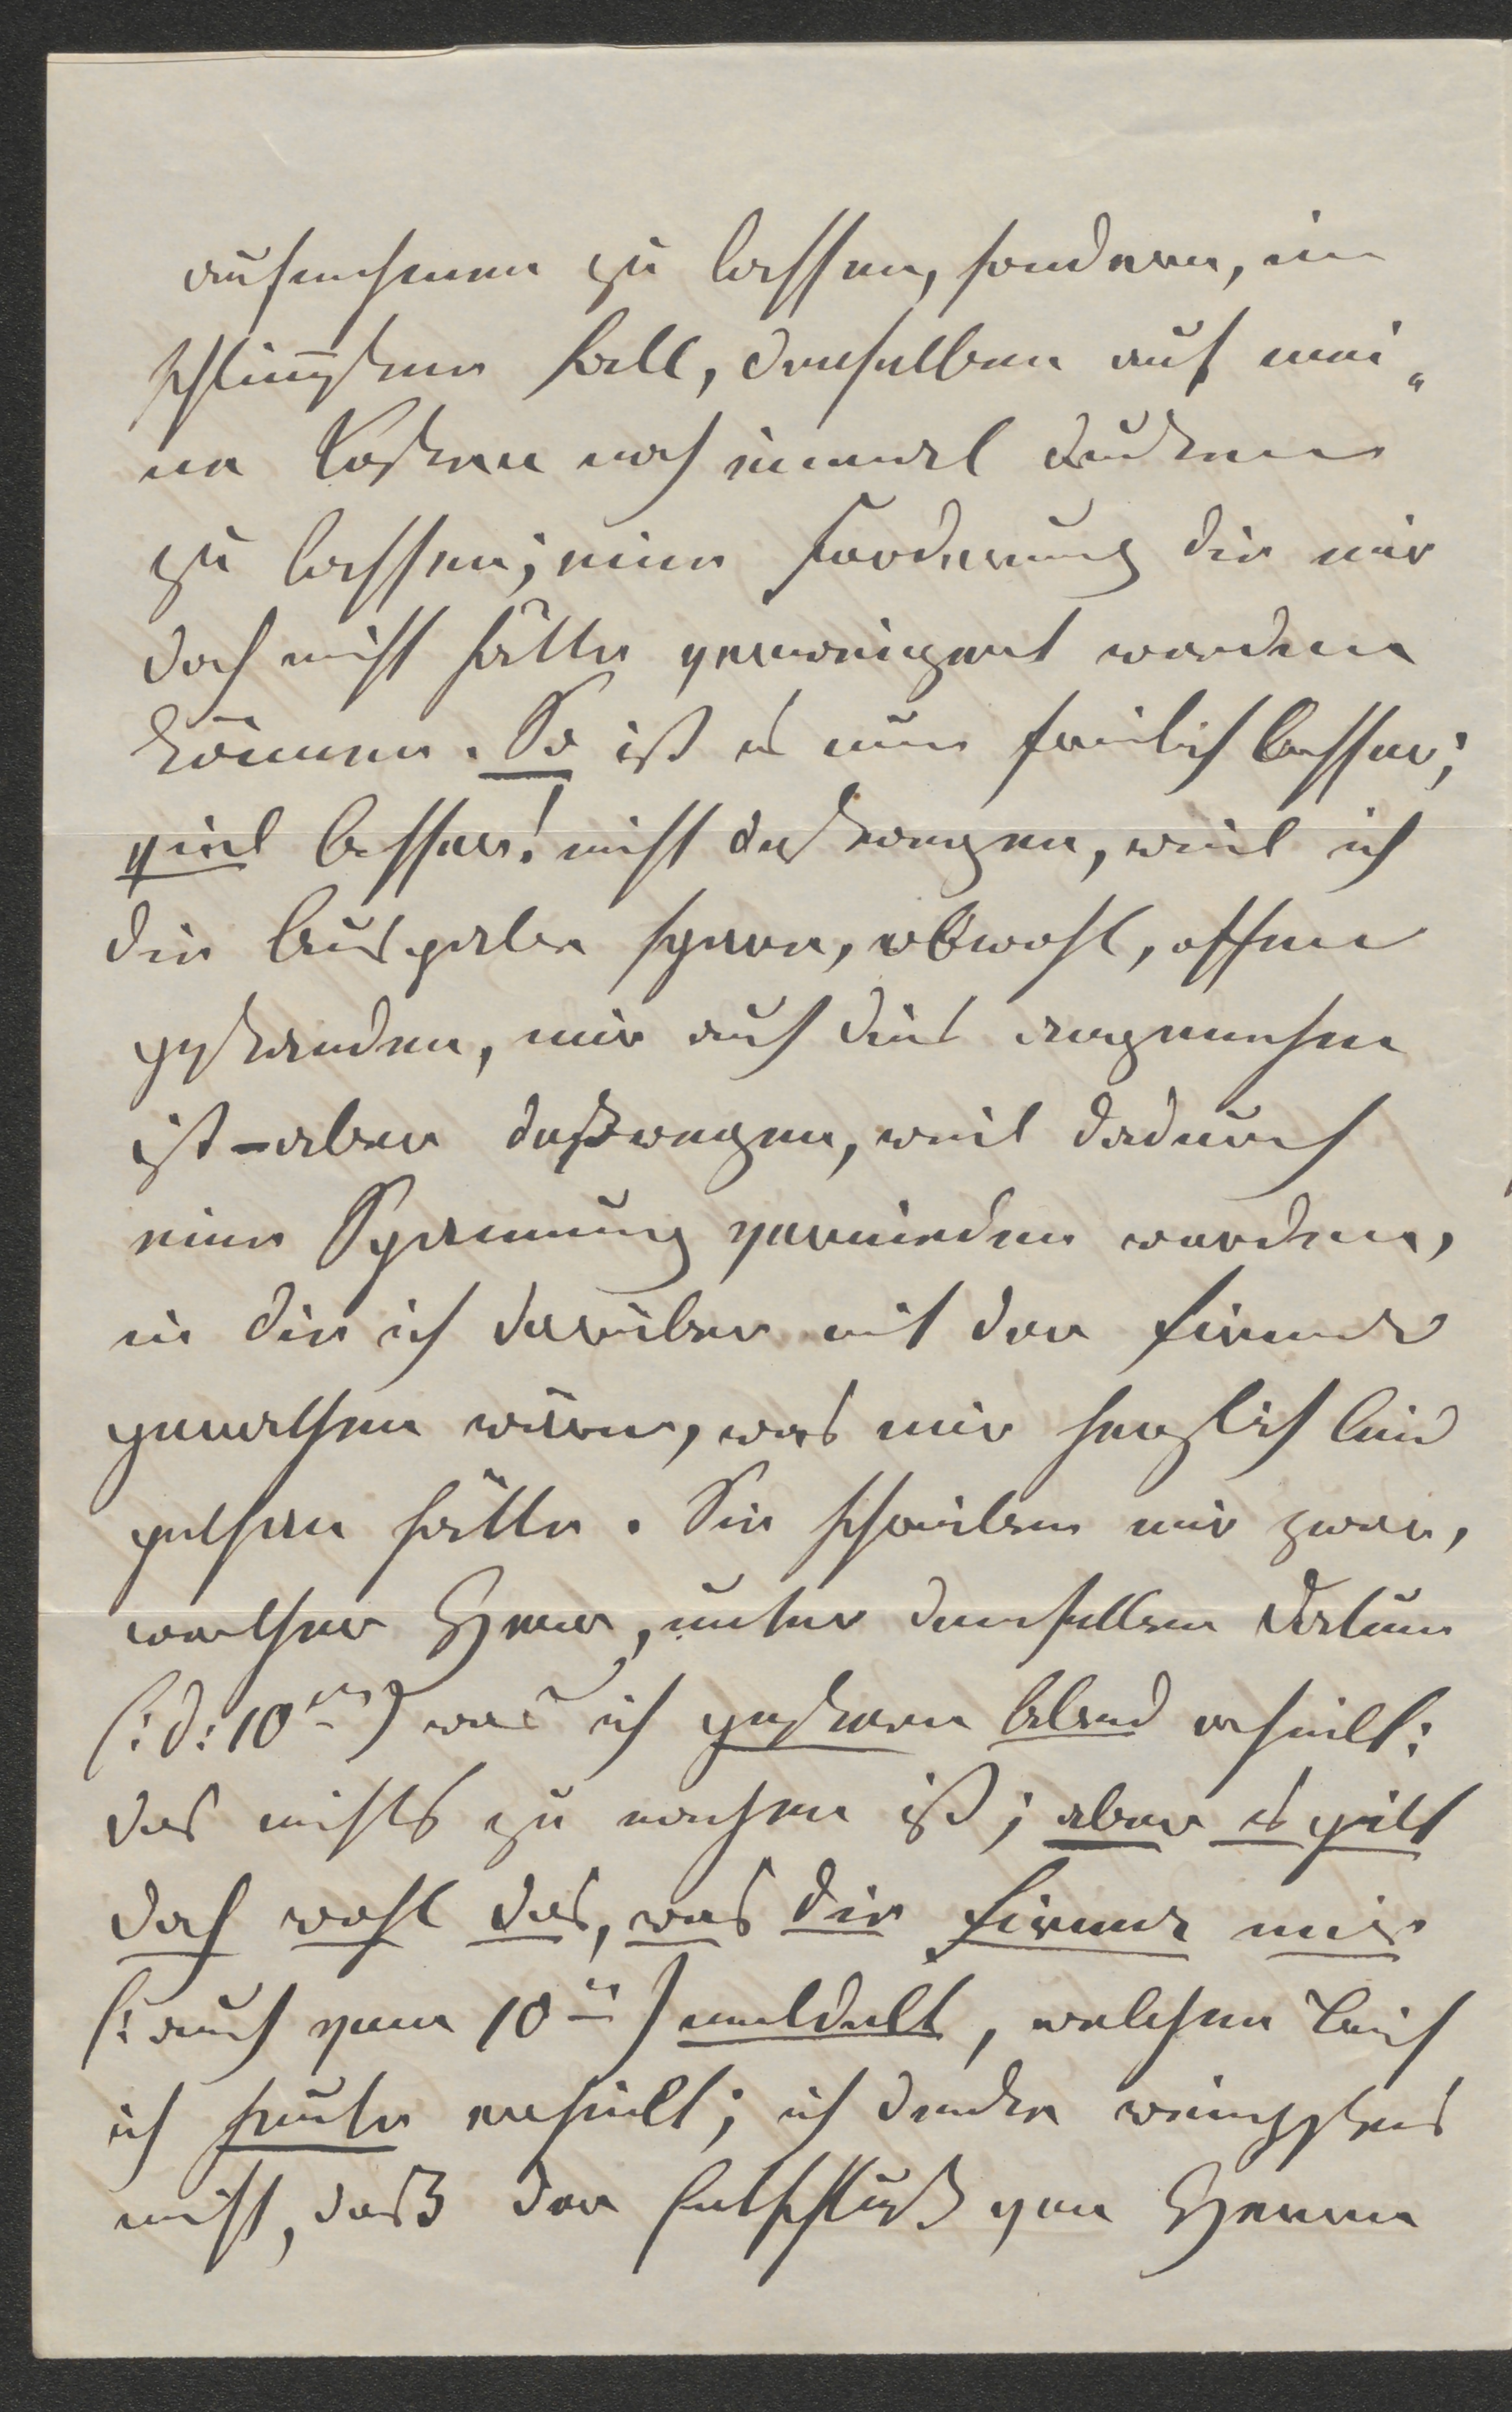 aufnehmen zu lassen, sondern, im
schlimsten Fall, denselben auf mei„
ne Kosten noch einmal drucken
zu lassen; eine Forderung die mir
doch nicht hätte verweigert werden
können. So ist es nun freilich besser;
viel besser! nicht deßwegen, weil ich
die Ausgabe spare, obwohl, offen
gestanden, mir auch dies angenehm
ist – aber deßwegen, weil dadurch
eine Spannung vermieden worden,
in die ich darüber mit der Firma
gerathen wäre, was mir herzlich leid
gethan hätte. Sie schreiben mir zwar,
werther Herr, unter demselben Datum
(: d: 10ten) was ich gestern Abend erhielt:
das nichts zu machen ist; aber es gilt
doch wohl das, was die Firma mir
(: auch vom 10ten) meldet, welchen Brief
ich heute erhielt; ich denke wenigstens
nicht, daß der Entschluß von Herrn